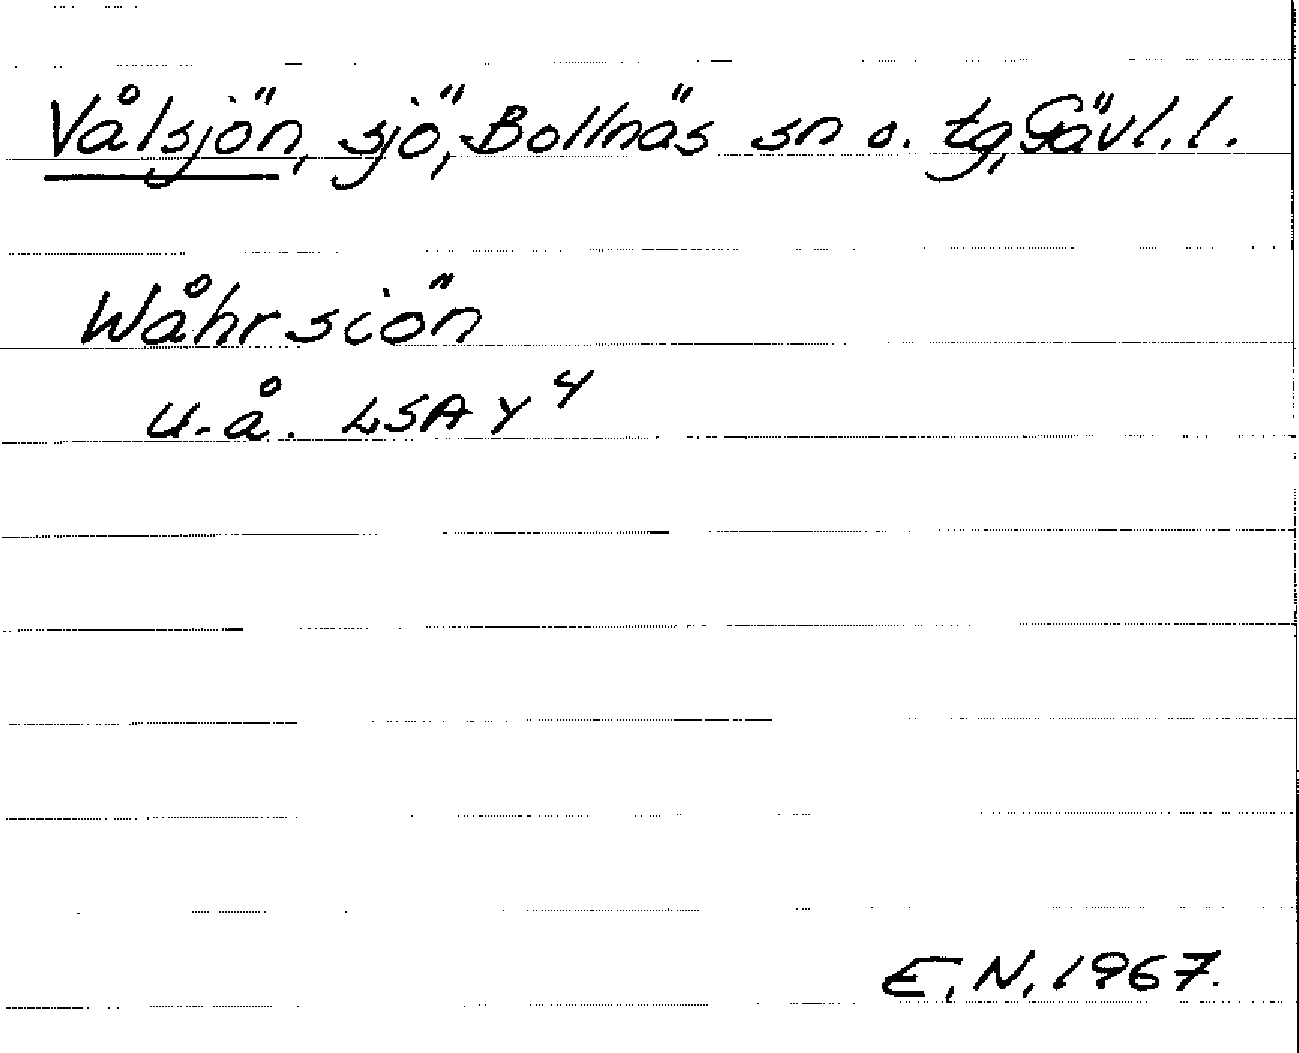 Vålsjön, sjö, Bollnäs sn o. tg, Gävl. l.
Wåhrsiön
u. å. LSA Y 4
E. N. 1967.